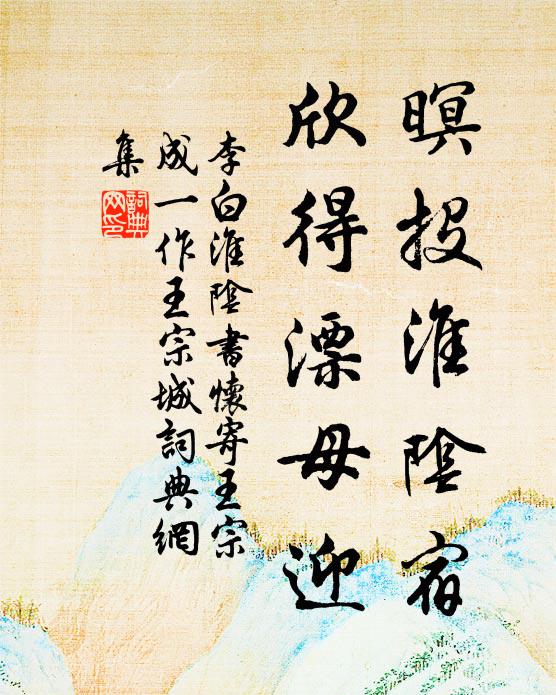 暝投淮陰宿
欣得漂母迎
李白淮陰書懷寄王宗
成一作王宗城詞典網
集
詞典網印